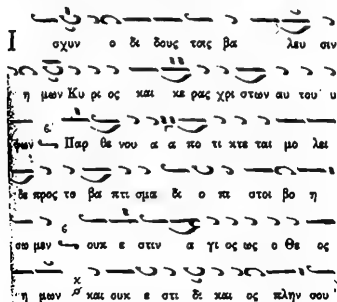 Ι σχυν ο δι δους τοις βα λευ σιν
η μων Κυ ρι ος και κε ρας χρι στων αυ του υ
ψων Παρ θε νου α α πο τι κτε ται μο λει
δε προς το βα πτι σμα δι ο πι στοι βο η
σω μεν ουκ ε στιν α γι ος ως ο Θε ος
η μων και ουκ ε στι δι και ος πλην σου